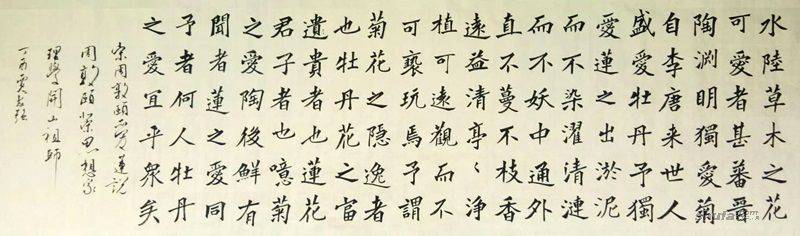 水陸草木之花
可愛者甚蕃晉
陶淵明獨愛菊
自李唐来世人
盛愛牡丹予獨
愛蓮之出淤泥
而不染濯清漣
而不妖中通外
直不蔓不枝香
遠益清亭〻淨
植可遠觀而不
可褻玩焉予謂
菊花之隐逸者
也牡丹花之富
遺貴者也蓮花
君子者也噫菊
之愛陶後鮮有
聞者蓮之愛同
予者何人牡丹
之愛宜乎衆矣
宋周敦頤爱蓮説
周敦頤宋思想家
理學開山祖師
丁酉